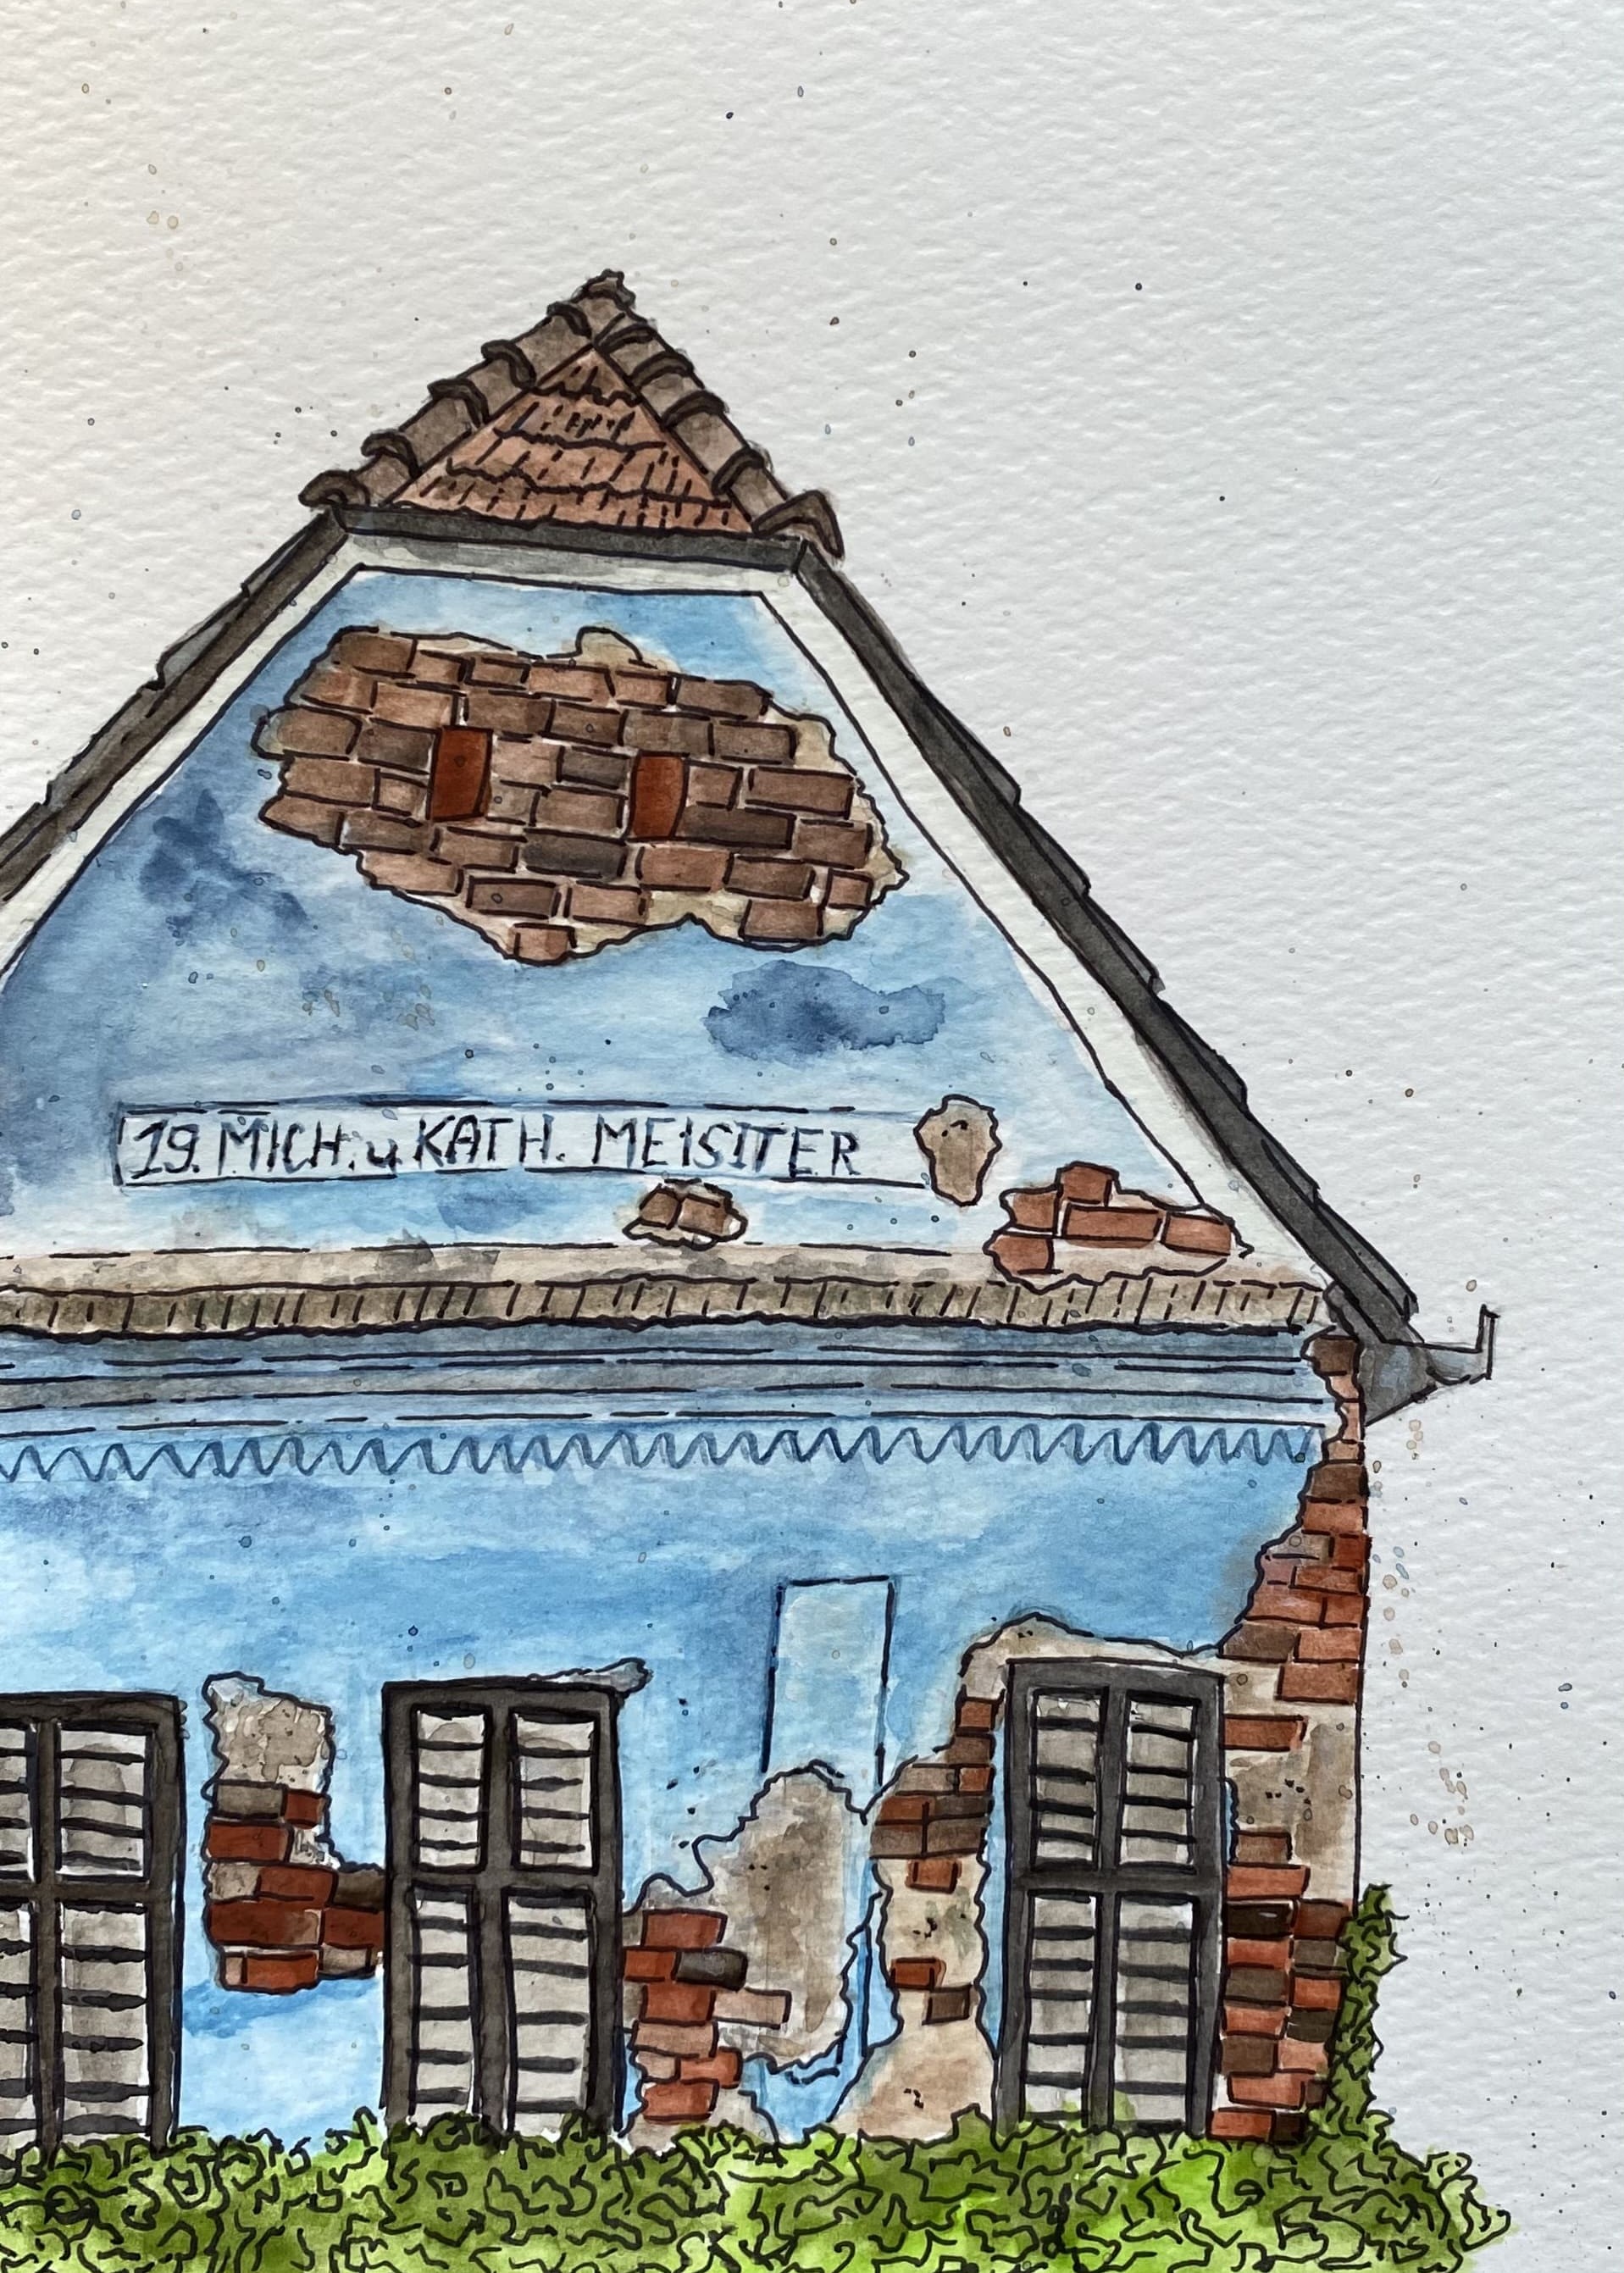 19. MICH. u. KATH. MEISITER